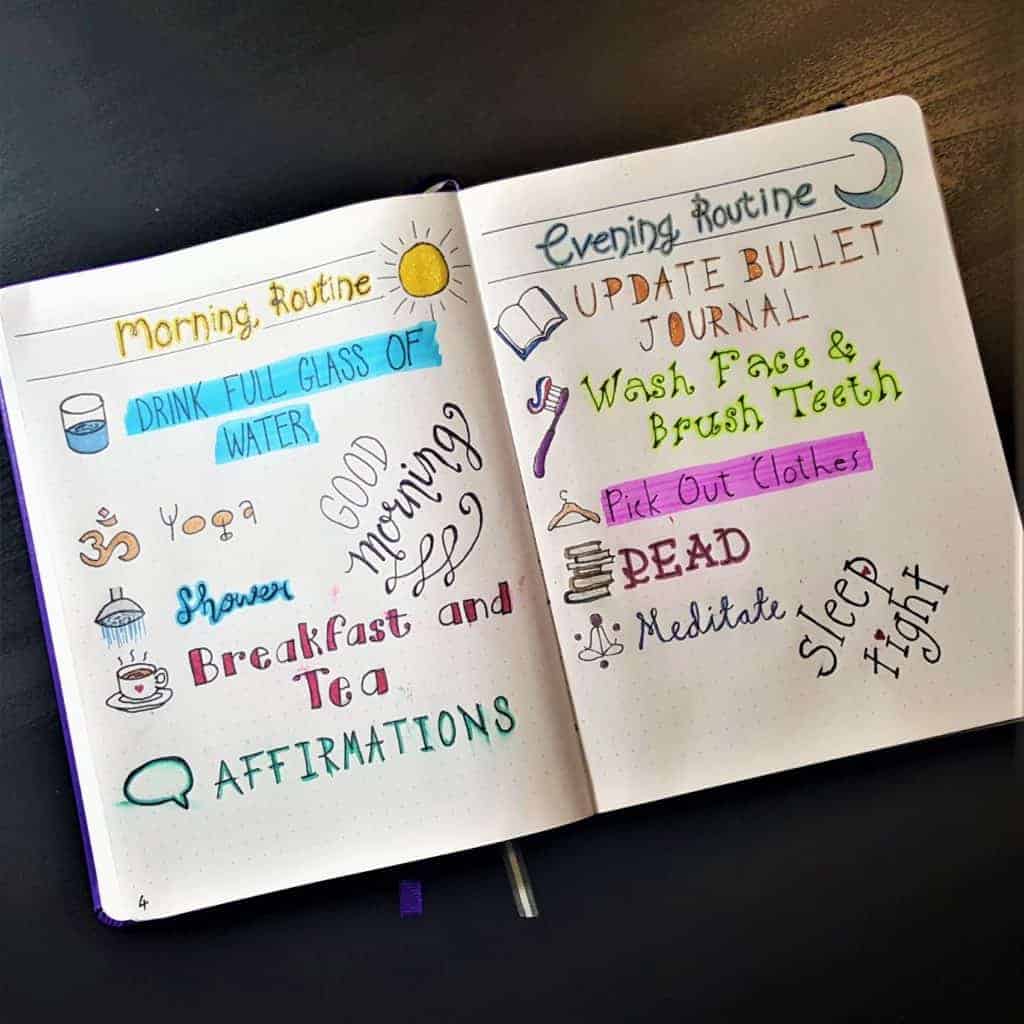 Morning Routine
DRINK FULL GLASS OF
WATER
GOOD
Morning
Yoga
Shower
Breakfast and
Tea
AFFIRMATIONS
4
Evening Routine
UPDATE BULLET
JOURNAL
Wash Face &
Brush Teeth
Pick Out Clothes
READ
Meditate
Sleep
tight